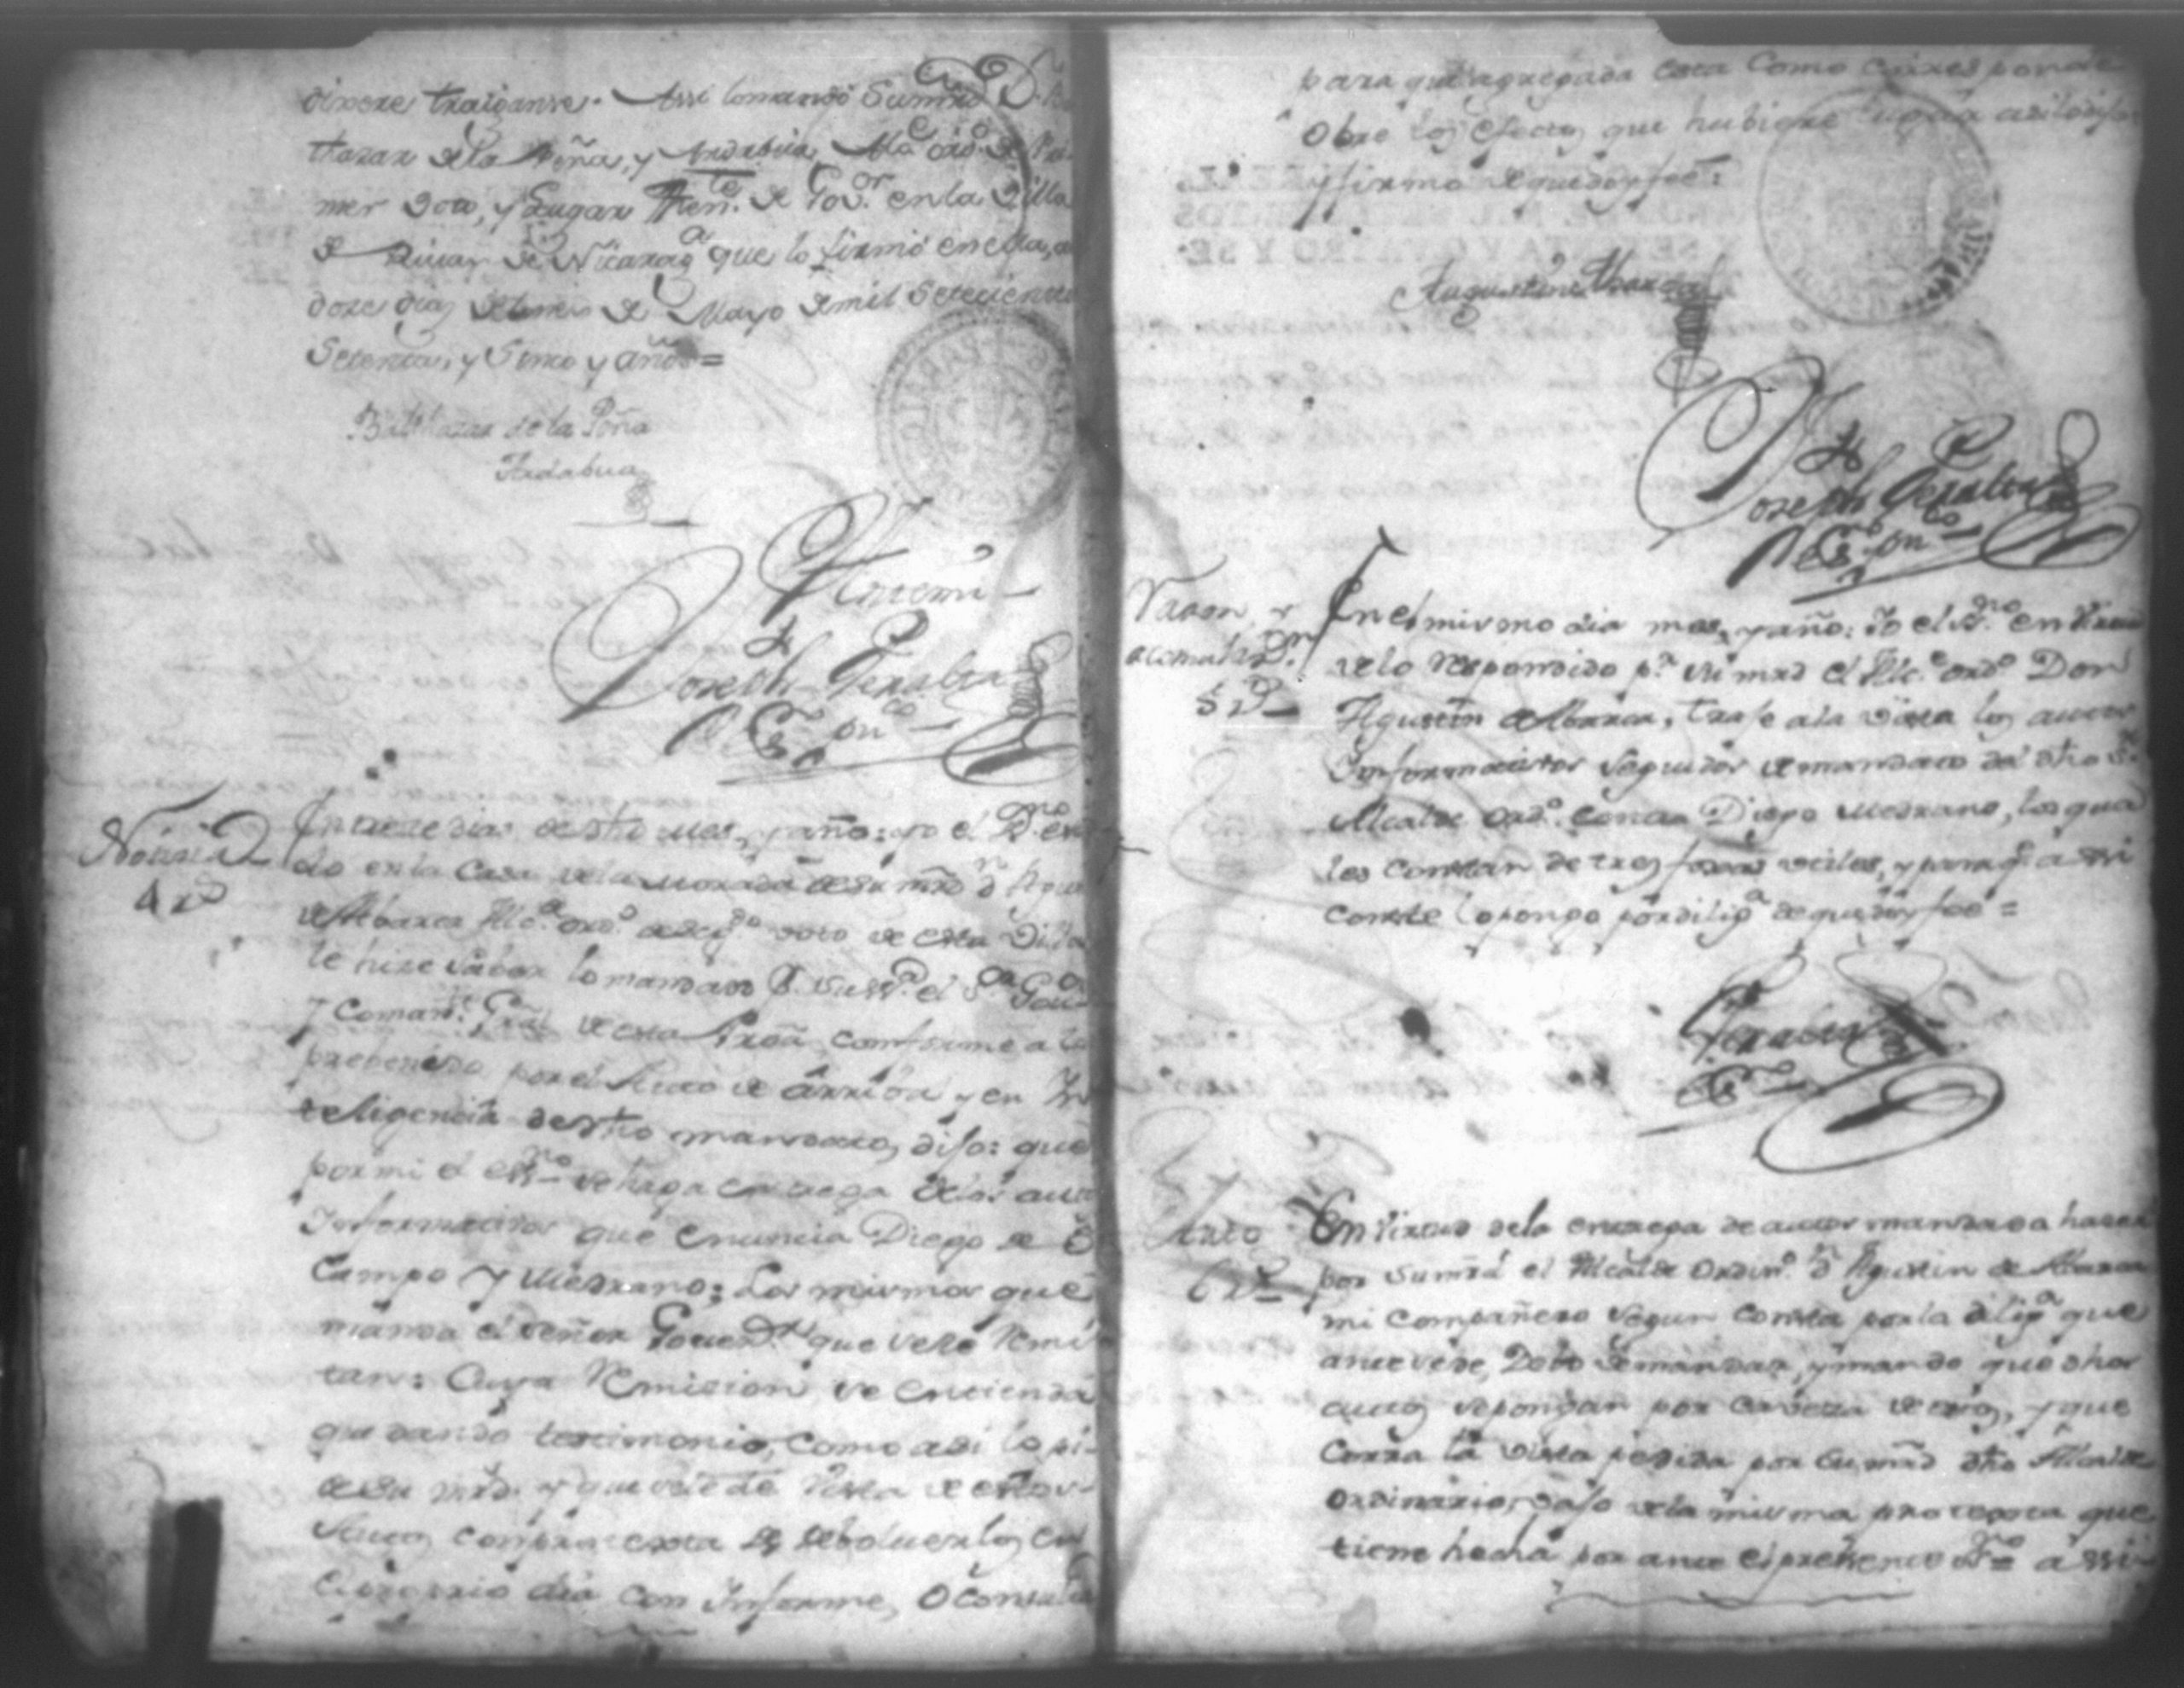 dixere traiganse. Assi lo mando Su mrd D. Bal
thazar de la Peña, y Ardabua Alce ordo de Pri
mer Voto, y Lugar Tente de Govor en la Villa
de Rivas de Nicaraga que lo firmó en ella, a
doze dias del mes de Mayo de mil Setecientos
Setenta, y Sinco y años =
Balthazar de la Peña
Ardabua
Ante mi
Joseph Peralta
Essno puco
Notn
4 rs
En trece dias de dho mes, y año: yo el Essno
do en la Casa de la morada de su mrd dn Agus
de Abarca Alce ordo de segdo voto de esta Villa
le hize saver lo mandado pr su sria el sor Gov
y Comante Gral de esta Proa conforme a lo
prebenido por el Auto de arriba y en In
teligencia de dho mandato, dijo: que
por mi el essno se haga entrega de los autos
Informativos que enuncia Diego de O
Campo y Medrano; Los mismos que
manda el Señor Governor que se le remi
tan: Cuya Remision se entienda
quedando testimonio, como asi lo pi-
de su mrd. y que se le de vista de estos
Autos con protexta de debolverlos en
el proprio dia con Informe, o consulta
para que agregada esta Como
Obre los efectos que hubiere lugar asi lo dijo
y firmó de que doy fee:
Augustin Abarca
Joseph Peralta
Essno puco
Razon, y
5 rs
En el mismo dia mes, y año: Yo el Essno en virtud
de lo Respondido pr su mrd el Alce ordo Don
Agustin de Abarca, traje a la vista los autos
Informativos seguidos de mandato del dho Sr
Alcalde ordo contra Diego Medrano, los qua
les constan de tres foxas utiles, y para qe assi
conste lo pongo por diliga de que doy fee =
Peralta
Essno
Auto
6 rs
En Virtud de la entrega de autos mandada hacer
por Su mrd el Alcalde Ordino dn Agustin de Abarca
mi compañero segun consta por la diliga que
antecede, Debo de mandar, y mando que dhos
autos se pongan por cabeza de estos, y que
Corra la vista pedida por su mrd dho Alcalde
ordinario, bajo de la misma protexta que
tiene hecha por ante el presente Essno = assi